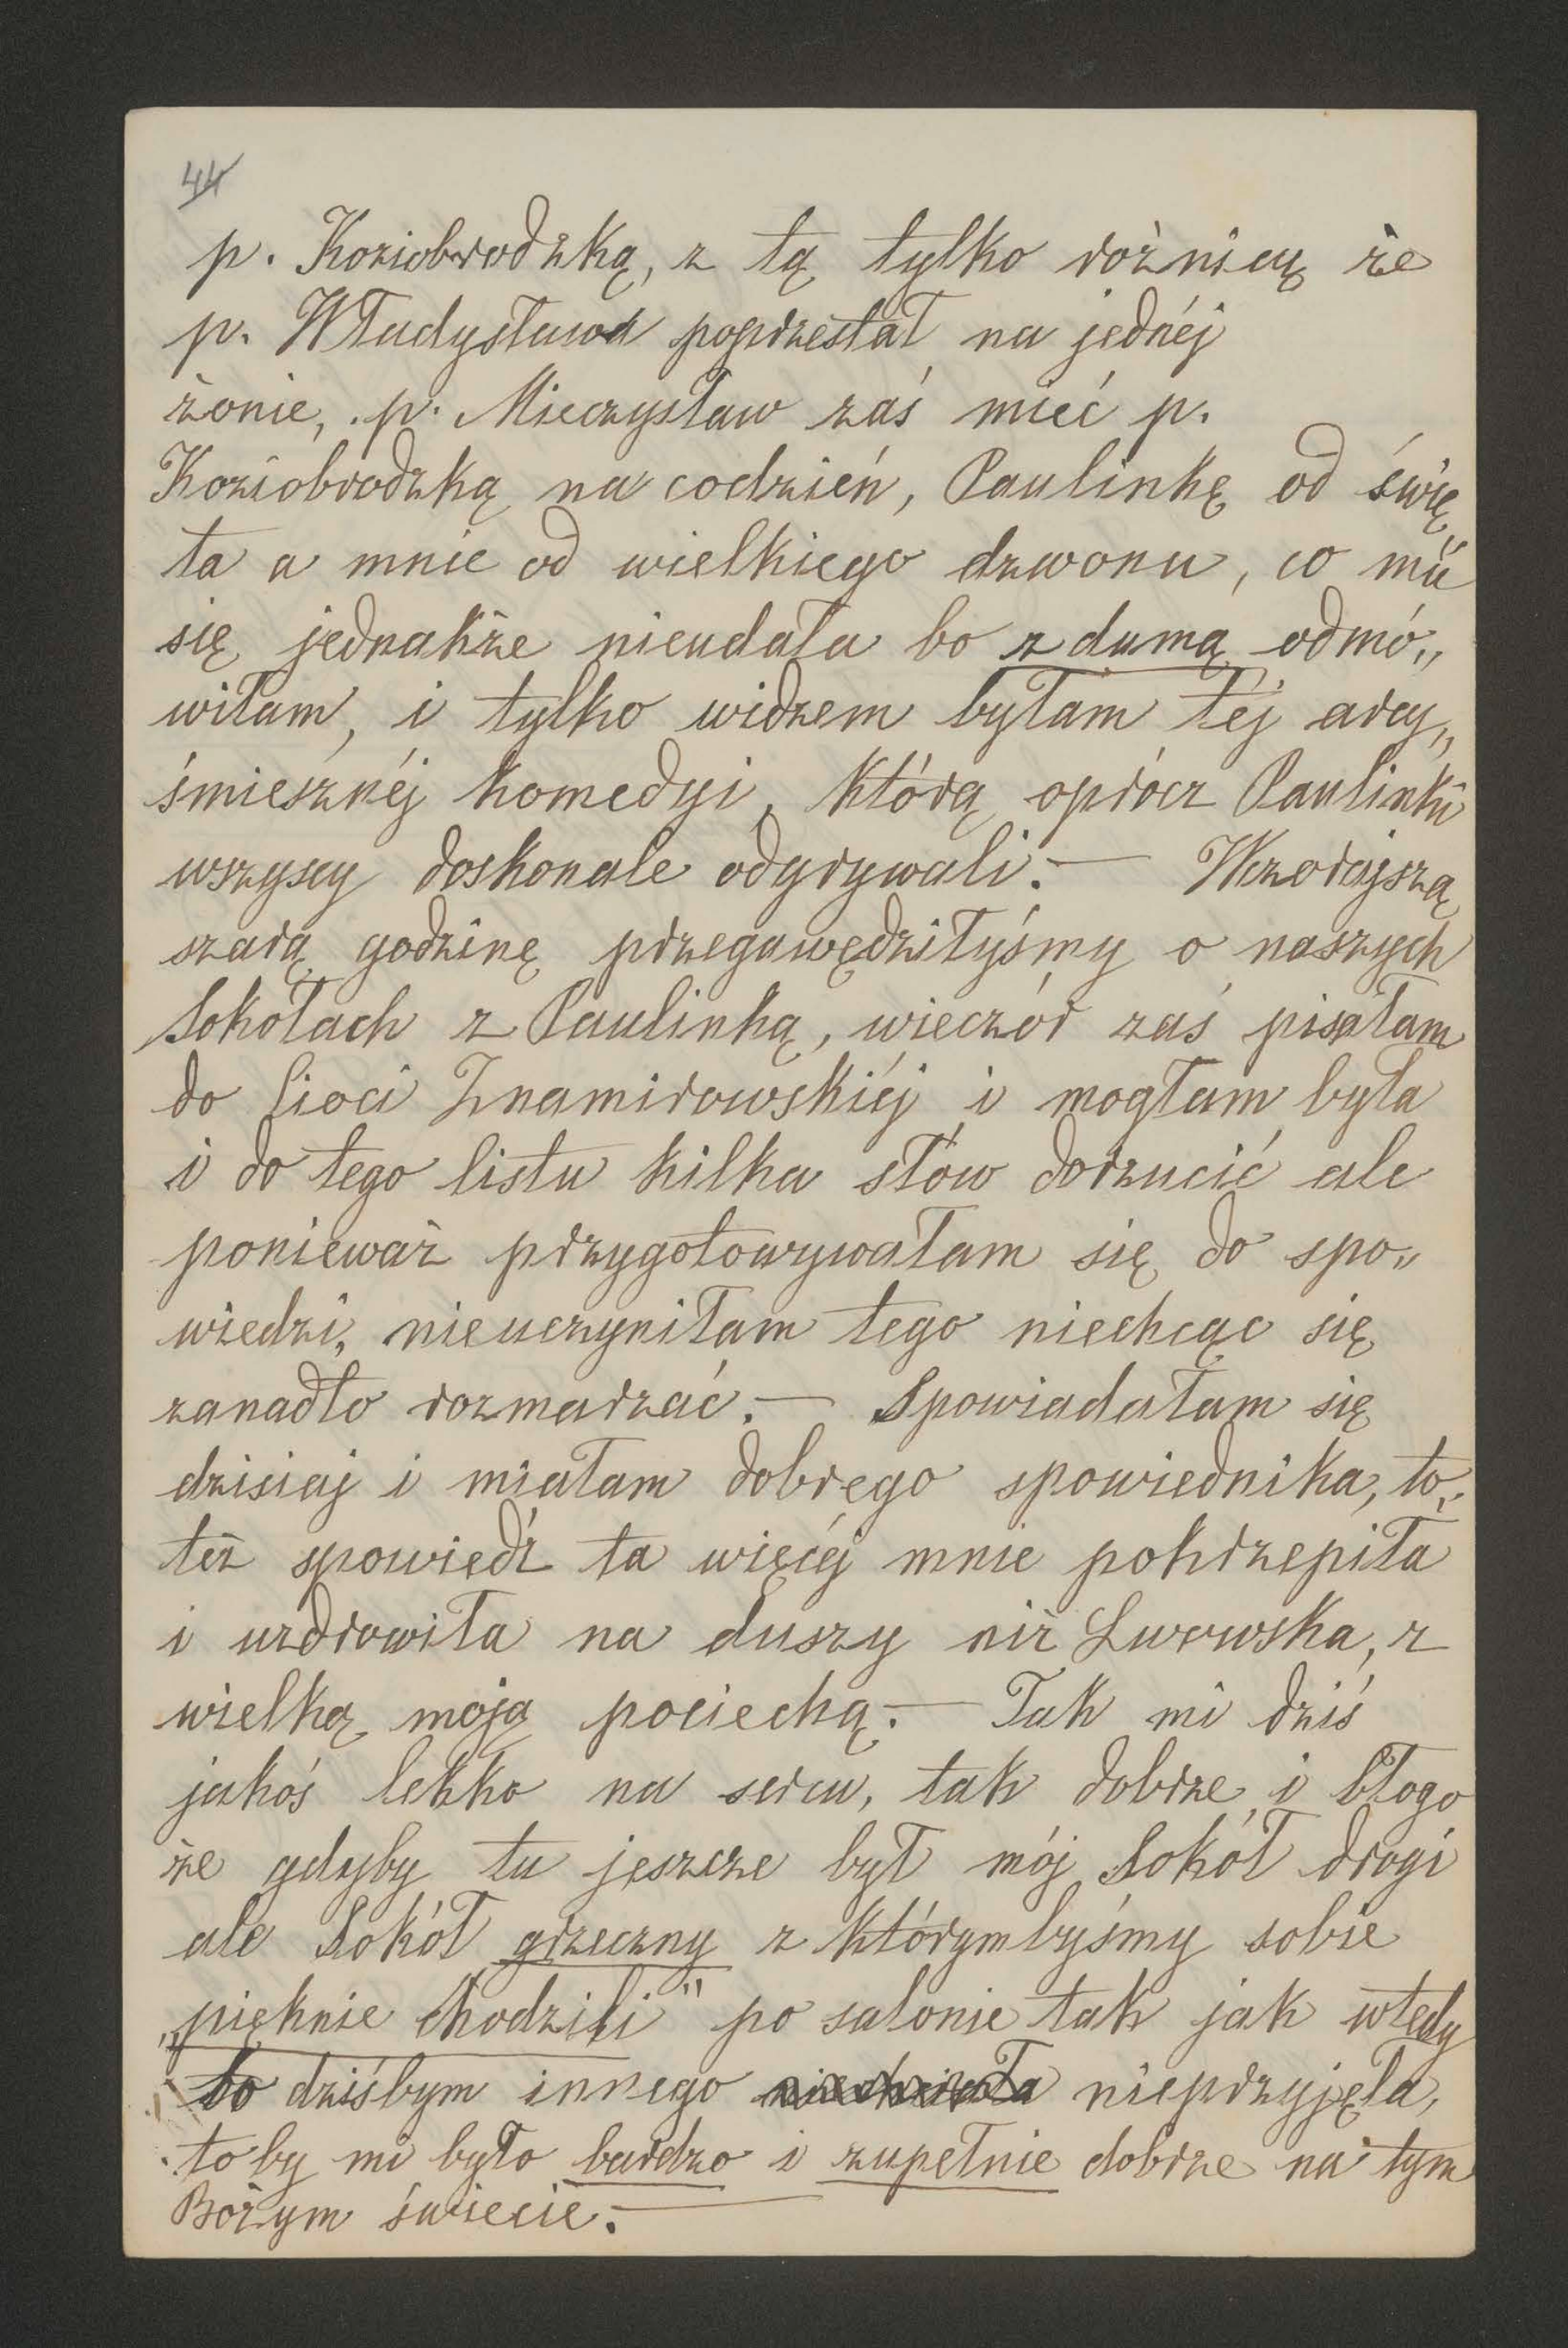 44
p. Koziobrodzką, z tą tylko różnicą że
p. Władysława poprzestał na jednéj
żonie, p. Mieczysław zaś mieć p.
Koziobrodzką na codzień, Paulinkę od świę„
ta a mnie od wielkiego dzwonu, co mu
się jednakże nieudała bo z dumą odmó„
wiłam, i tylko widzem byłam téj arcy„
śmiesznéj komedyi, którą oprócz Paulinki
wszyscy doskonale odgrywali. — Wczorajszą
szarą godzinę przegawędziłyśmy o naszych
Sokołach z Paulinką, wieczór zaś pisałam
do Cioci Znamirowskiéj i mogłam była
i do tego listu kilka słów dorzucić ale
ponieważ przygotowywałam się do spo„
wiedzi, nieuczyniłam tego niechcąc się
zanadto rozmarzać. — Spowiadałam się
dzisiaj i miałam dobrego spowiednika, to„
też spowiedź ta więcéj mnie pokrzepiła
i uzdrowiła na duszy niż Lwowska, z
wielką moją pociechą. — Tak mi dziś
jakoś lekko na sercu, tak dobrze i błogo
że gdyby tu jeszcze był mój Sokół drogi
ale Sokół grzeczny z którymbyśmy sobie
„pięknie chodzili" po salonie tak jak wtedy
bo dziśbym innego niechciała nieprzyjęła,
to by mi było bardzo i zupełnie dobrze na tym
Bożym świecie. —